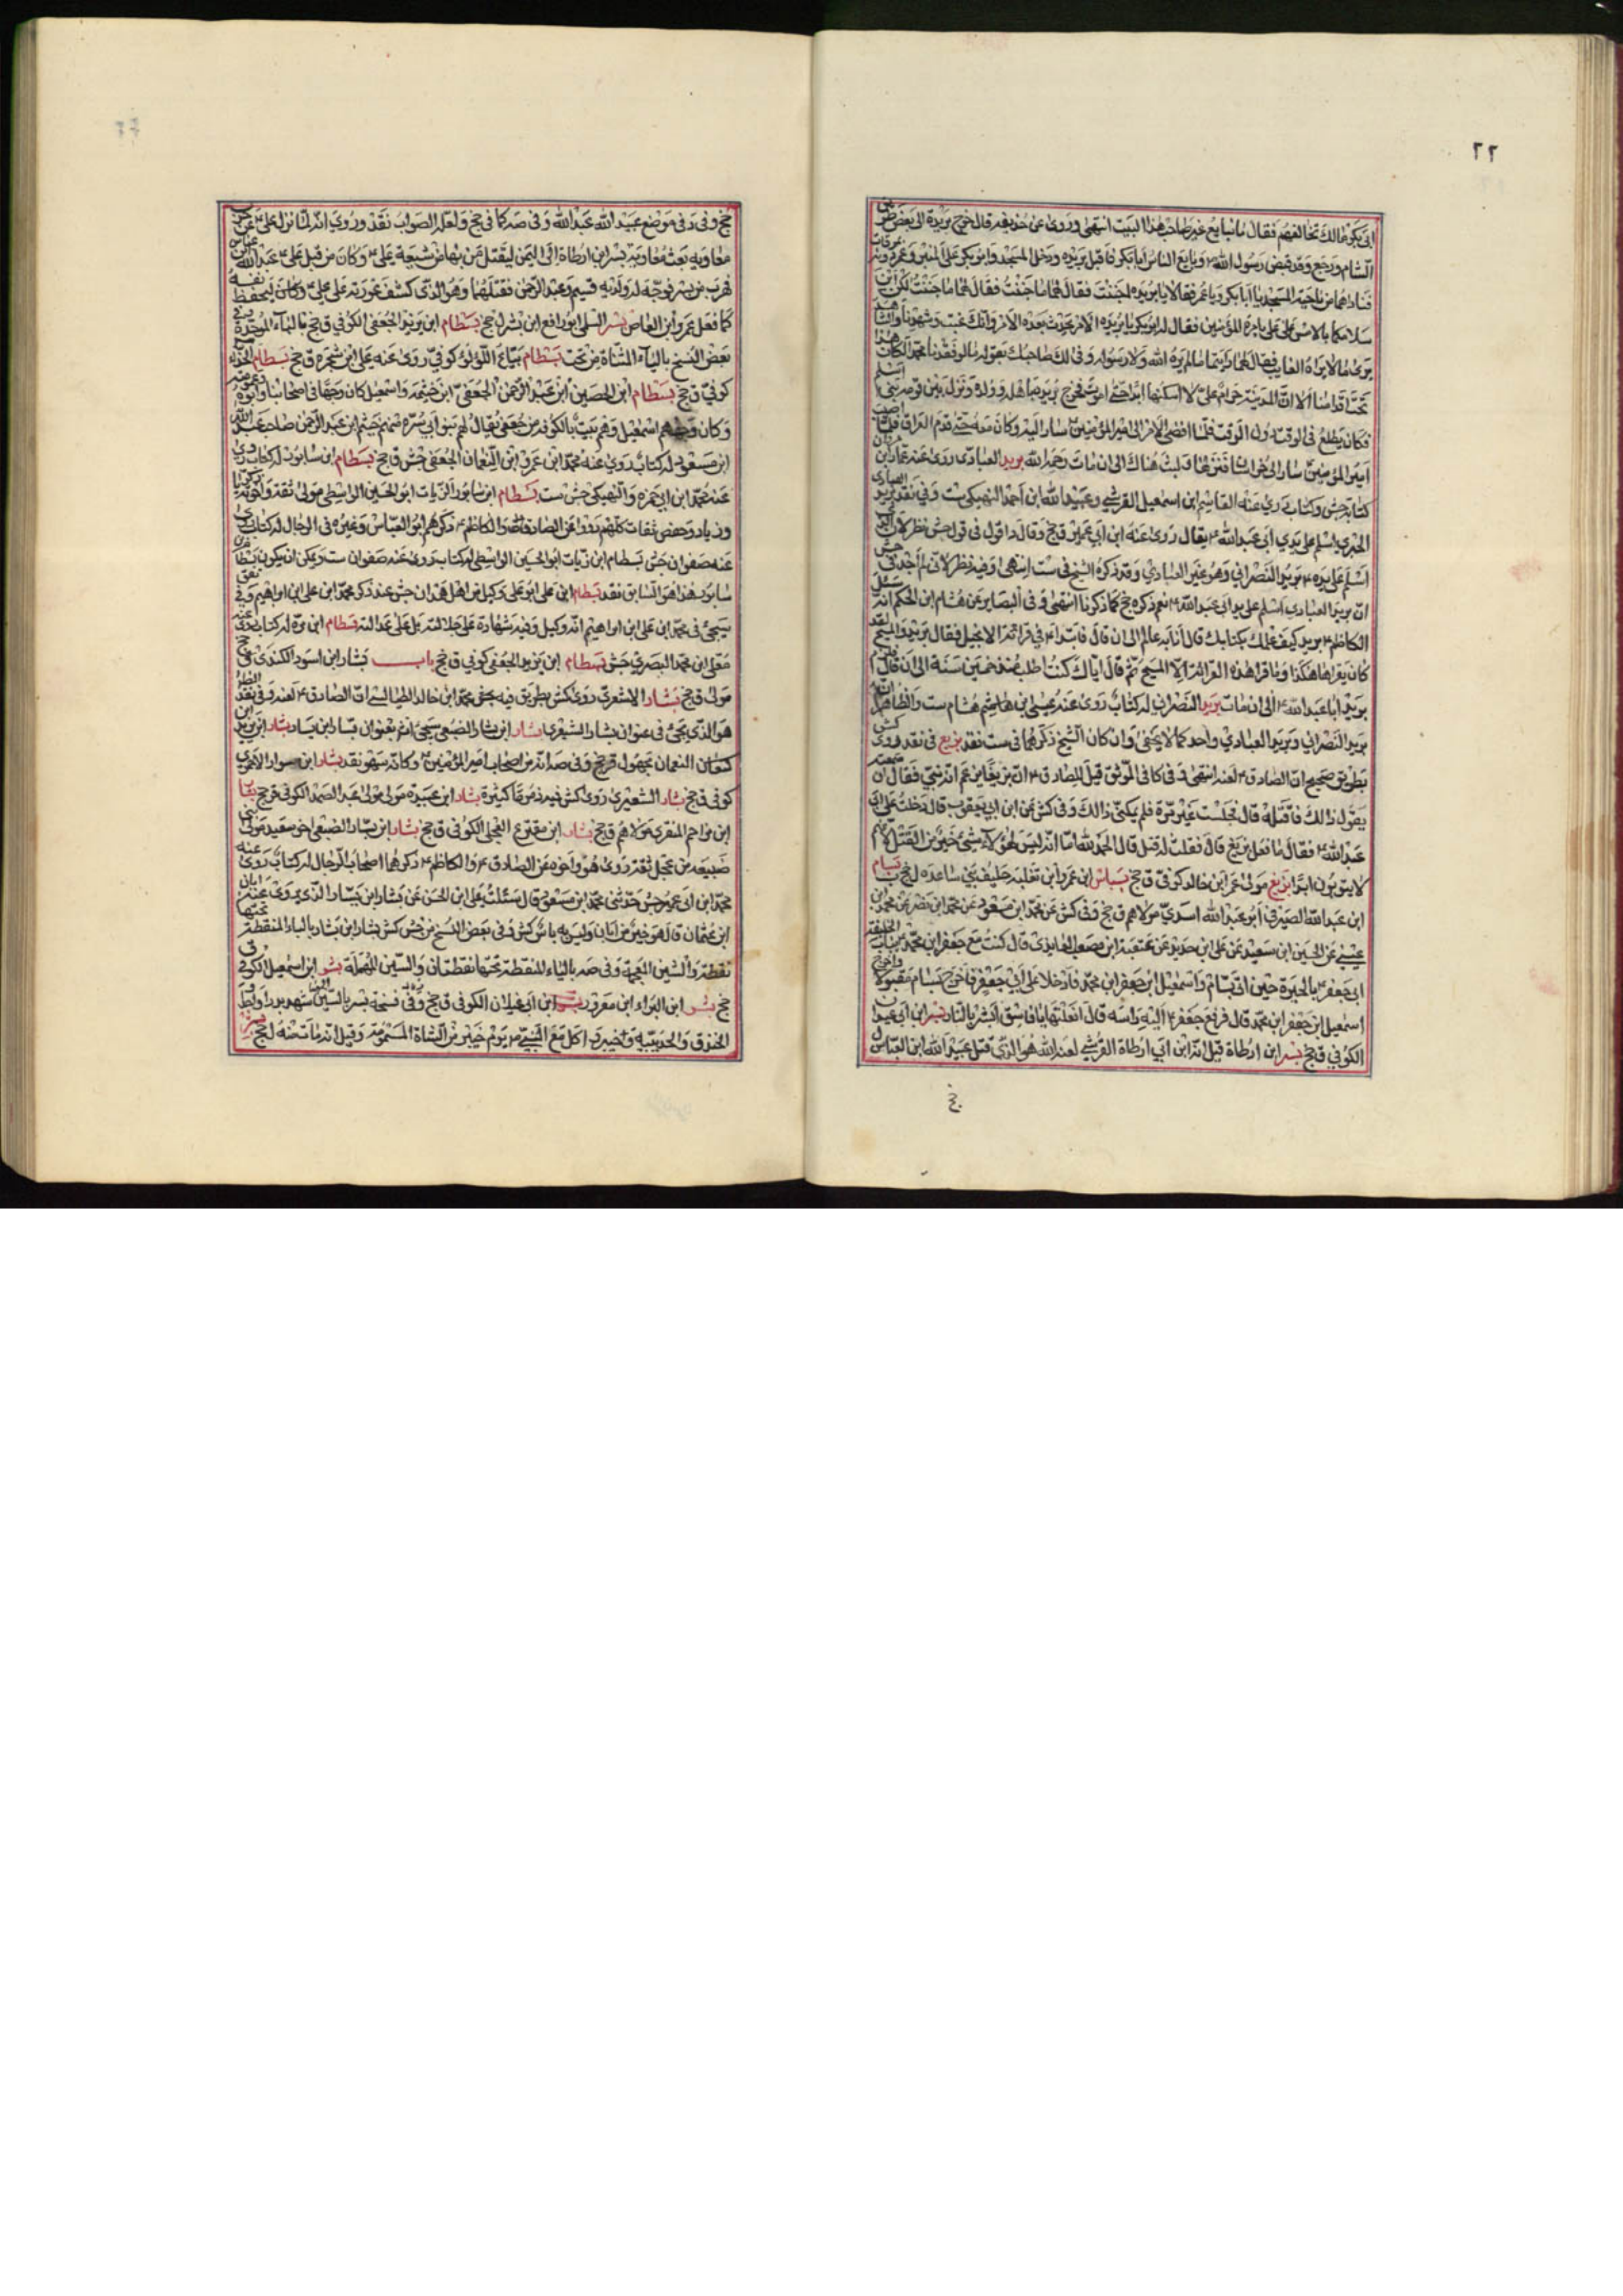 ٢٢
ابي بكر مالك تخالفهم فقال ما نبايع غير صاحب هذا البيت انتهى وروى عن حذيفه قال خرج بريدة الى بعض طرق
الشام ورجع وقد قبض رسول الله وبايع الناس ابابكر فاقبل بريده ودخل المسجد وابو بكر على المنبر وعمر دونه
فناداهما من ناحية المسجد يا ابابكر ويا عمر فقالا يا بريده اجننت فقال لهما ما جننت لكن اين
سلامكما بالامس على علي بامرة المؤمنين فقال له ابوبكر يا بريده الامر يحدث بعده الامر وانك غبت وشهدنا والشاهد
يرى ما لا يراه الغايب فقال لهما رايتما ما لم يره الله ولا رسوله وفى لك صاحبك بقوله لو فقدنا محمدا لكان هذا
تحت اقدامنا الا ان المدينة حرام علي لا اسكنها ابدا حتى اموت فخرج بريده باهله وولده ونزل بين قومه بني اسلم
فكان يطلع في الوقت دون الوقت فلما افضى الامر الى امير المؤمنين سار اليه وكان معه حتى قدم العراق فلما اصيب
امير المؤمنين سار الى خراسان فنزلها ولبث هناك الى ان مات رحمه الله بريد العبادى روى عنه عمار ابن مروان
كتابه جش وكتاب روى عنه القاسم ابن اسمعيل القرشي وعبيد الله ابن احمد النهيكى ست وفي نقد بريد العبادى
الحيري اسلم على يدي ابي عبد الله يقال روى عنه ابن ابي عمير ق جخ وقال د اقول في قول جش نظر لان الذي
اسلم على يده بريد النصراني وهو غير العبادي وقد ذكره الشيخ في ست انتهى وفيه نظر لانى لم اجد في جش
ان بريد العبادي اسلم على يد ابي عبد الله نعم ذكره جخ كما ذكرنا انتهى وفى البصاير عن هشام ابن الحكم انه سئل
الكاظم بريد كيف علمك بكتابك قال انا به عالم الى ان قال فابتدا في قرائة الانجيل فقال بريد والمسيح لقد
كان يقراها هكذا وما قرا هذه القرائة الا المسيح ثم قال اياك كنت اطلب منذ خمسين سنة الى ان قال
بريد ابا عبد الله الى ان مات بريد النصراني له كتاب روى عنه عيسى بن هشام ست والظاهر
بريد النصراني وبريد العبادي واحد كما لا يخفى وان كان الشيخ ذكرهما في ست نقد بزيع في نقد روى كش
بطريق صحيح ان الصادق لعنه انتهى وفى كا فى الموثق قيل للصادق ان بزيعا يزعم انه نبي فقال ان سمعته
يقول ذالك فاقتله قال فجلست غير مرة فلم يمكنى ذالك وفى كش عن ابن ابي يعقوب قال دخلت على ابي
عبد الله فقال ما فعل بزيع قال فقلت له قتل قال الحمد لله اما انه ليس لهؤلاء شئ خير من القتل لانهم
لا يتوبون ابدا بزيع مولى عمر ابن خالد كوفي ق جخ بسباس ابن عمرو ابن ثعلبه حليف بني ساعده ل جخ بسام
ابن عبد الله الصيرفي ابو عبد الله اسدي مولاهم ق جخ وفى كش عن محمد ابن مسعود عن محمد ابن نصر عن محمد ابن
عيسى عن الحسين ابن سعيد عن على ابن حديد عن عنبسة ابن مصعب العابدى قال كنت مع جعفر ابن محمد بباب الخليفة
ابي جعفر بالحيرة حين اتى ببسام واسمعيل ابن جعفر ابن محمد فادخلا على ابي جعفر فاخرج بسام مقتولا واخرج
اسمعيل ابن جعفر ابن محمد قال فرفع جعفر اليه راسه قال افعلتها يا فاسق ابشر بالنار بسر ابن ابي غيلان
الكوفي ق جخ بسر ابن ارطاة قيل انه ابن ابي ارطاة القرشي لعنه الله هو الذي قتل عبيد الله ابن العباس ل
جخ
جخ وفى د فى موضع عبيد الله عبد الله وفى صه كما في جخ ولعله الصواب نقد وروي انه لما نزل على عن حرب
معاويه بعث معاويه بسر ابن ارطاه الى اليمن ليقتل من بها من شيعة على وكان من قبل على عبد الله ابن عباس
فهرب من بسر فوجد له ولديه قثيم وعبد الرحمن فقتلهما وهو الذى كشف عورته على علي وكان ليحفظ نفسه
كما فعل عمرو ابن العاص بسر السلمى ابو رافع ابن بشر ل جخ بسطام ابن يزيد الجعفى الكوفي ق جخ بالباء الموحدة وفي
بعض النسخ بالياء المثناة من تحت بسطام بياع اللؤلؤ كوفي روى عنه على ابن شجره ق جخ بسطام الحذاء
كوفي ق جخ بسطام ابن الحصين ابن عبد الرحمن الجعفي ابن خيثمه واسمعيل كان وجها فى اصحابنا وابوه وعمومته
وكان وجههم اسمعيل وهم بيت بالكوفة من جعفي يقال لهم بنو ابي سبره منهم خيثم ابن عبد الرحمن صاحب عبد الله
ابن مسعود له كتاب روى عنه محمد ابن عمرو ابن النعمان الجعفي جش ق جخ بسطام ابن سابور له كتاب روى
عنه محمد ابن ابي حمزه والنهيكي جش ست بسطام ابن سابور الزيات ابو الحسين الواسطي مولى ثقة واخوته زكريا
وزياد وحفص ثقات كلهم رووا عن الصادق والكاظم ذكرهم ابو العباس وغيره في الرجال له كتاب روى
عنه صفوان جش بسطام ابن زيات ابو الحسين الواسطي له كتاب روى عنه صفوان ست ويمكن ان يكون بسطام ابن
سابور هذا هو السابق نقد بسطام ابن على ابو على وكيل من اهل همدان جش عند ذكر محمد ابن على ابن ابراهيم وفي تعق
سيجئ في محمد ابن على ابن ابراهيم انه وكيل وفيه شهادة على جلالته بل على عدالته بسطام ابن مره له كتاب روى عنه
معلى ابن محمد البصري جش بسطام ابن يزيد الجعفى كوفي ق جخ باب بشار ابن اسود الكندى ق جخ
مولى ق جخ بشار الاشعري روى كش بطريق فيه محمد ابن خالد الطيالسي ان الصادق لعنه وفى نقد الظاهر
هو الذي يجئ في عنوان بشار الشعيرى بشار ابن بشار الضبعى سيجئ انش بعنوان بشار ابن يسار بشار ابن زيد ابن
النعمان مجهول قر جخ وفى صه انه من اصحاب امير المؤمنين وكانه سهو نقد بشار ابن سوار الاحمرى
كوفي ق جخ بشار الشعيري روى كش فيه ذموما كثيرة بشار ابن عبيدة مولى عبد الصمد الكوفى ق جخ بشار
ابن مزاحم المنقري مولاهم ق جخ بشار ابن مقترع العجلى الكوفي ق جخ بشار ابن يسار الضبعى اخو سعيد مولى بني
ضبيعه من عجل ثقة روى هو واخوه عن الصادق والكاظم ذكرهما اصحاب الرجال له كتاب روى عنه
محمد ابن ابي عمير جش حدثني محمد ابن مسعود قال سئلت على ابن الحسن عن بشار ابن يسار الذي يروى عنه ابان
ابن عثمان قال هو خير من ابان وليس به باس كش وفى بعض النسخ من جش كش بشار ابن بشار بالباء المنقطة تحتها
نقطة والشين المعجمة وفى صه بالياء المنقطة تحتها نقطتان والسين المهملة بشر ابن اسمعيل الكوفي ق
جخ بشر ابن البراء ابن معرور بشر ابن ابى غيلان الكوفى ق جخ وفى نسخة بسر بالسين شهد بدرا واحدا و
الخندق والحديبيه وخيبر و اكل مع النبي يوم خيبر من الشاة المسمومة وقيل انه مات منه ل جخ بشر